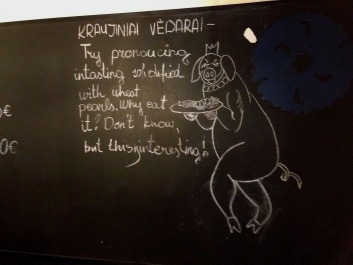 KRAUJINIAI VĖDARAI -
Try pronoucing
intasting solidified
with wheat
pearls. Why eat
it? Don't know,
but thisisinteresting!
€
0€